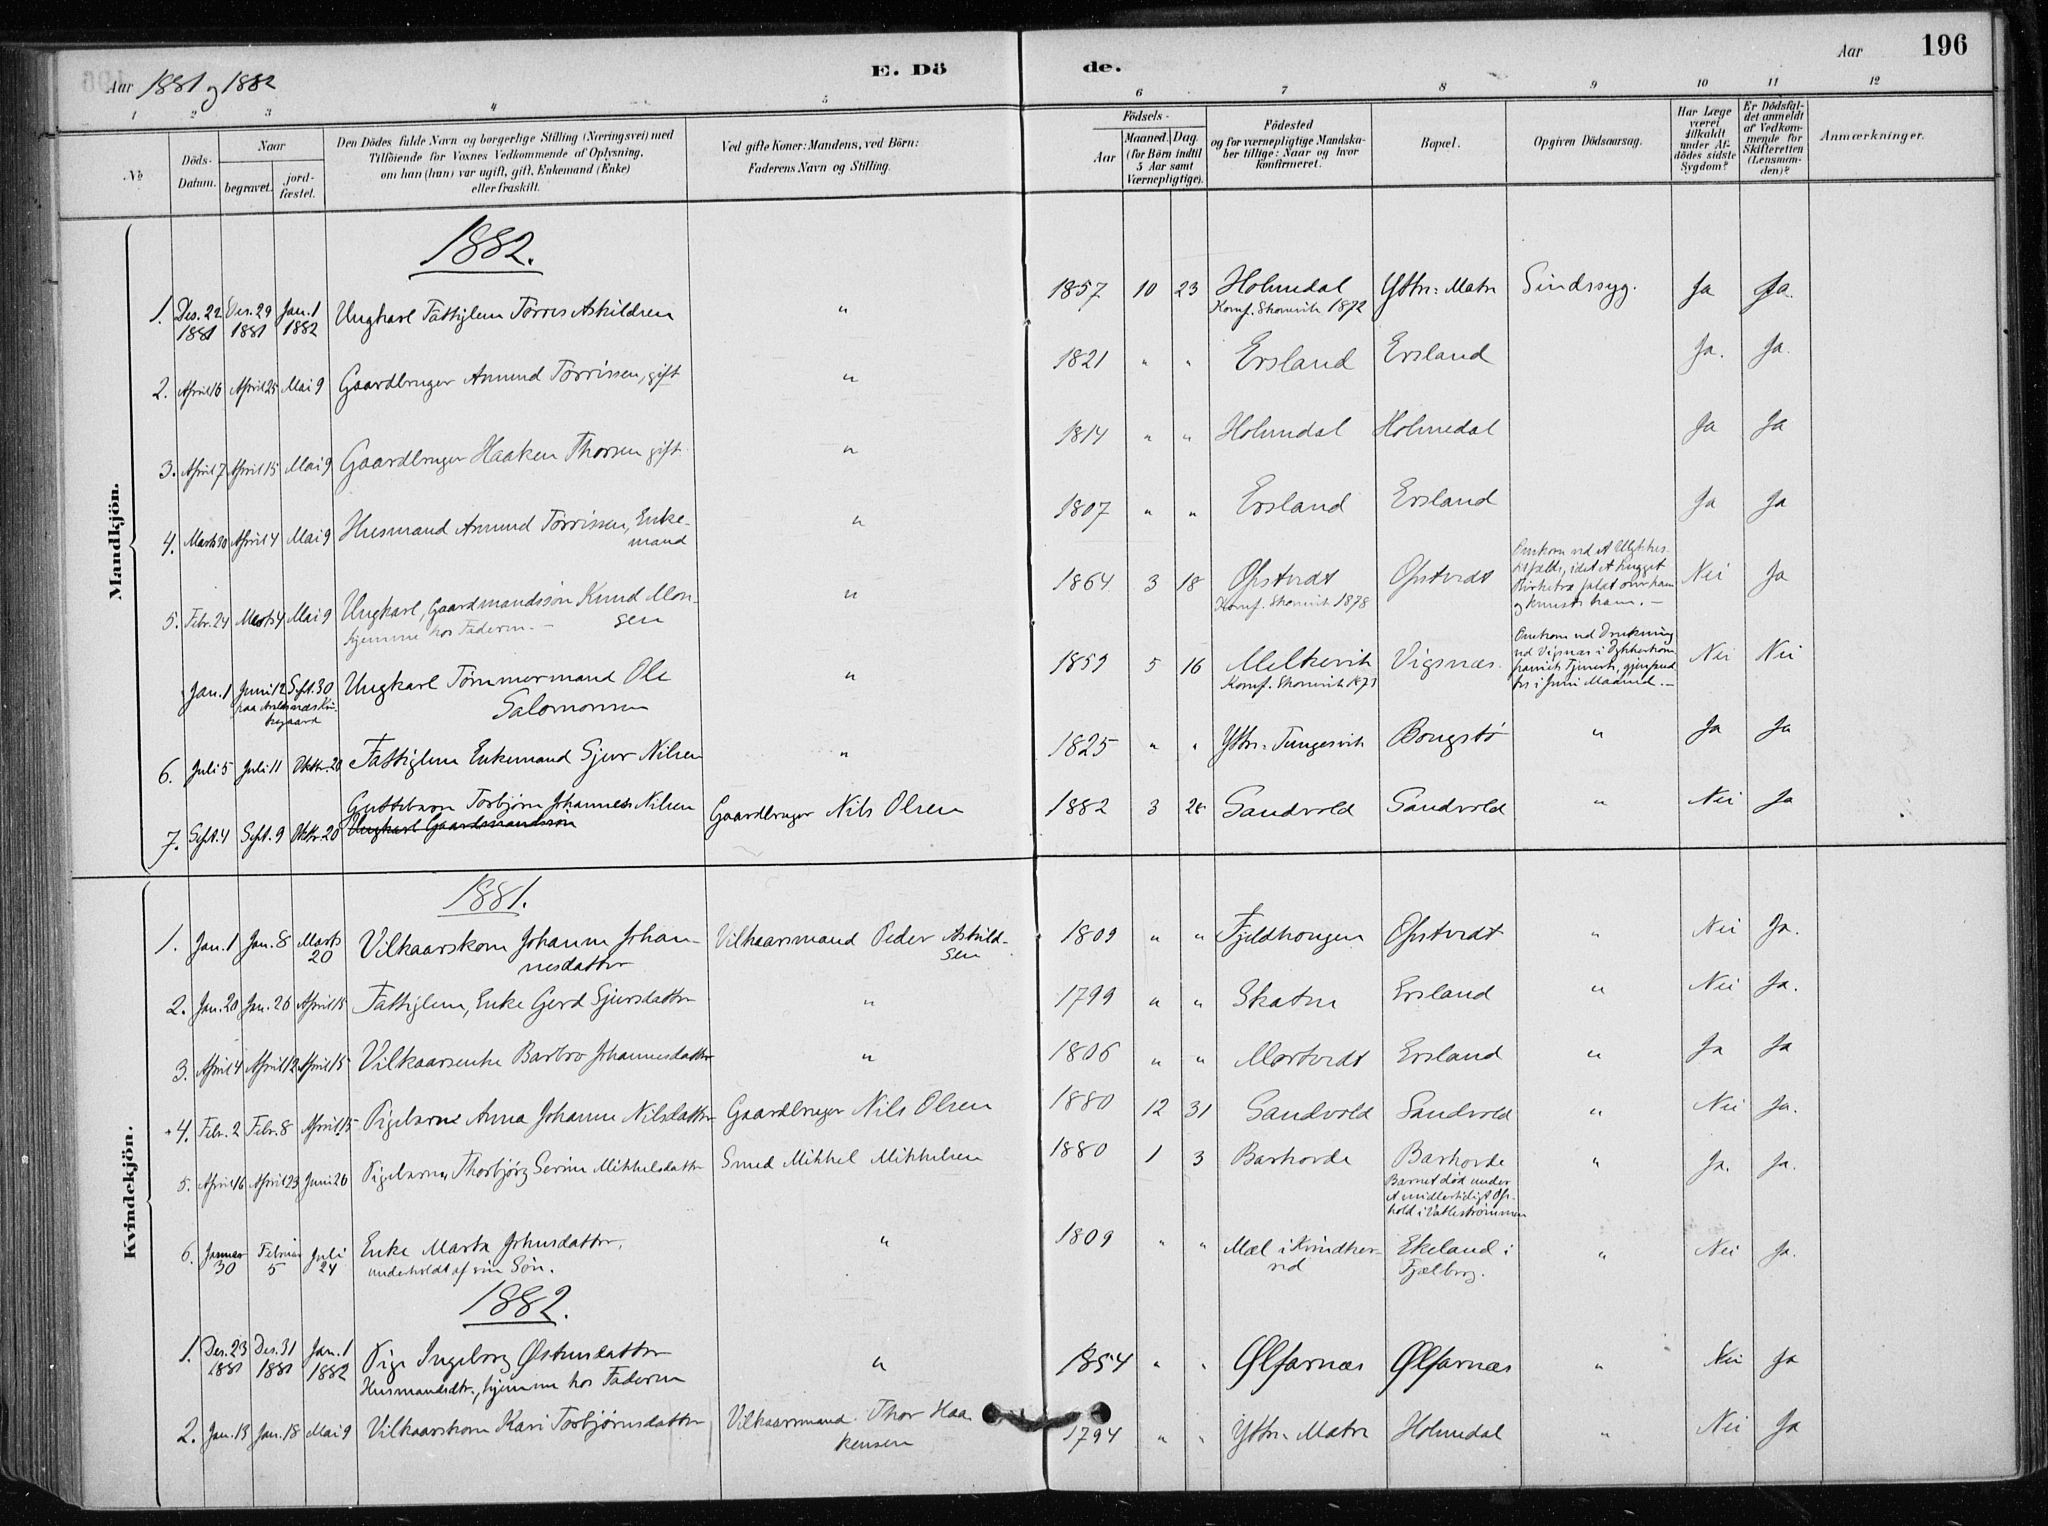 Aar 1881 og 1882
E. Dö
de.
Aar
196
1 2 3 4 5 6 7 8 9 10 11 12
№
Döds-Datum.
Naar
begravet.
jord-fæstet.
Den Dödes fulde Navn og borgerlige Stilling (Næringsvei) med
Tilföiende for Voxnes Vedkommende af Oplysning,
om han (hun) var ugift, gift, Enkemand (Enke)
eller fraskilt.
Ved gifte Koner: Mandens, ved Börn:
Faderens Navn og Stilling.
Födsels-
Aar
Maaned. Dag.
(for Börn indtil
5 Aar samt
Værnepligtige).
Födested
og for værnepligtige Mandska-
ber tillige: Naar og hvor
konfirmeret.
Bopæl.
Opgiven Dödsaarsag.
Har Læge
været
tilkaldt
under Af-
dödes sidste
Sygdom?
Er Dödsfal-
det anmeldt
af Vedkom-
mende for
Skifteretten
(Lensman-
den)?
Anmærkninger.
Mandkjön.
1882.
1. Des. 22 1881 Des. 29 1881 Jan. 1 1882 Ungkarl Fattiglem Tørres Askildsen " 1857 10 23 Holmedal Ytre Matre Sindssyg. Ja Ja.
Konf. Skonevik 1872
2. April 16 April 25 Mai 9 Gaardbruger Amund Torrissen, gift " 1821 " " Ersland Ersland Ja. Ja.
3. April 7 April 15 Mai 9 Gaardbruger Haaken Thorsen gift " 1814 " " Holmedal Holmedal Ja Ja
4. Marts 30 April 4 Mai 9 Husmand Amund Torrissen, Enke-
mand " 1807 " " Ersland Ersland Ja Ja
5. Febr. 24 Marts 4 Mai 9 Ungkarl, Gaardmandssøn Knud Mon-
sen
hjemme hos Faderen.— " 1864 3 18 Opstvedt Opstvedt Nei Ja
Konf. Skonevik 1878
Omkom ved et Ulykkes-
tilfælde, idet et hugget
Birketræ faldt over ham
og knuste ham.—
Jan. 1 Juni 12 Sept. 30 Ungkarl Tømmermand Ole
Salomonsen " 1859 5 16 Melkevik Vigsnæs. Nei Nei
Omkom ved Drukning
ved Vigsnæs
i Juni Maaned.—
6. Juli 5 Juli 11 Oktr. 20 Fattiglem Enkemand Sjur Nilsen " 1825 " " Ytre Tungesvik Bongstø " Ja Ja
7. Sept. 4 Sept. 9 Oktr. 20 Guttebarn Torbjørn Johannes Nilsen Gaardbruger Nils Olsen 1882 3 Sandvold Sandvold " Nei Ja
Ungkarl Gaardmandssøn
Kvindekjön.
1881.
1. Jan. 1 Jan. 8 Marts 20 Vilkaarskone Johanne Johan-
nesdatter Vilkaarsmand Peder Askild-
sen 1809 " " Fjeldhougen Opstvedt " Nei Ja.
2. Jan. 20 Jan. 26 April 15 Fattiglem, Enke Gerd Sjursdatter " 1799 " " Skatne Ersland " Nei Ja.
3. April 4 April 12 April 15 Vilkaarsenke Barbro Johannesdatter " 1806 " " Mortvedt Ersland " Ja Ja
4. Febr. 2 Febr. 8 April 15 Pigebarn Anna Johanne Nilsdatter Gaardbruger Nils Olsen 1880 12 31 Sandvold Sandvold " Nei Ja.
5. April 16 April 23 Juni 26 Pigebarn, Thorbjørg Serine Mikkelsdatter Smed Mikkel Mikkelsen 1880 1 3 Barhovde Barhovde " Ja. Ja.
Barnet død under
et midlertidigt Op-
hold i Vatlestrømmen
6. Januar 30 Februar 5 Juli 24 Enke Marta Johnsdatter, " 1809 " " Mæl i Kvindher-
red Ekeland i
Fjælberg. " Nei Ja.
underholdt af sin Søn.
1882.
1. Des. 23 1881 Des. 31 1881 Jan. 1 1882 Pige Ingeborg Østensdatter " 1854 " " Ølfarnæs Ølfarnæs " Nei Ja
Husmandsdtr., hjemme hos Faderen
2. Jan. 13 Jan. 18 Mai 9 Vilkaarskone Kari Torbjørnsdatter Vilkaarsmand Thor Haa-
kensen 1794 " " Ytre Matre Holmedal " Nei Ja